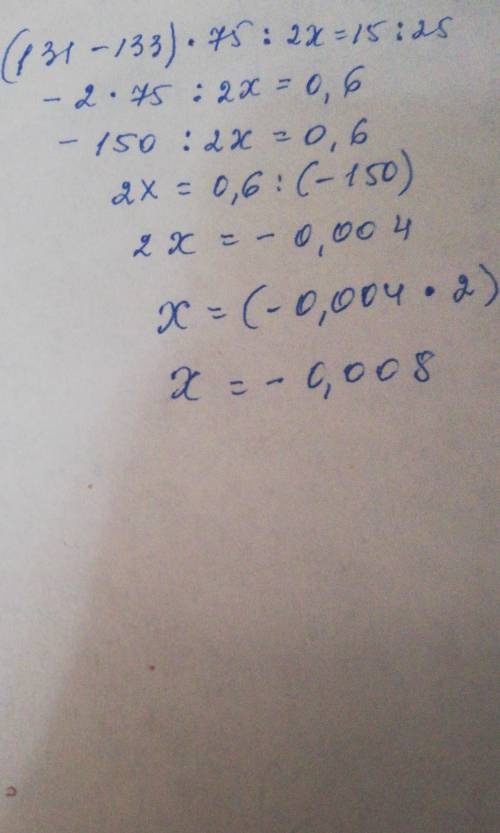 (131 - 133) · 75 : 2x = 15 : 25
- 2 · 75 : 2x = 0,6
- 150 : 2x = 0,6
2x = 0,6 : (- 150)
2x = - 0,004
x = (- 0,004 · 2)
x = - 0,008